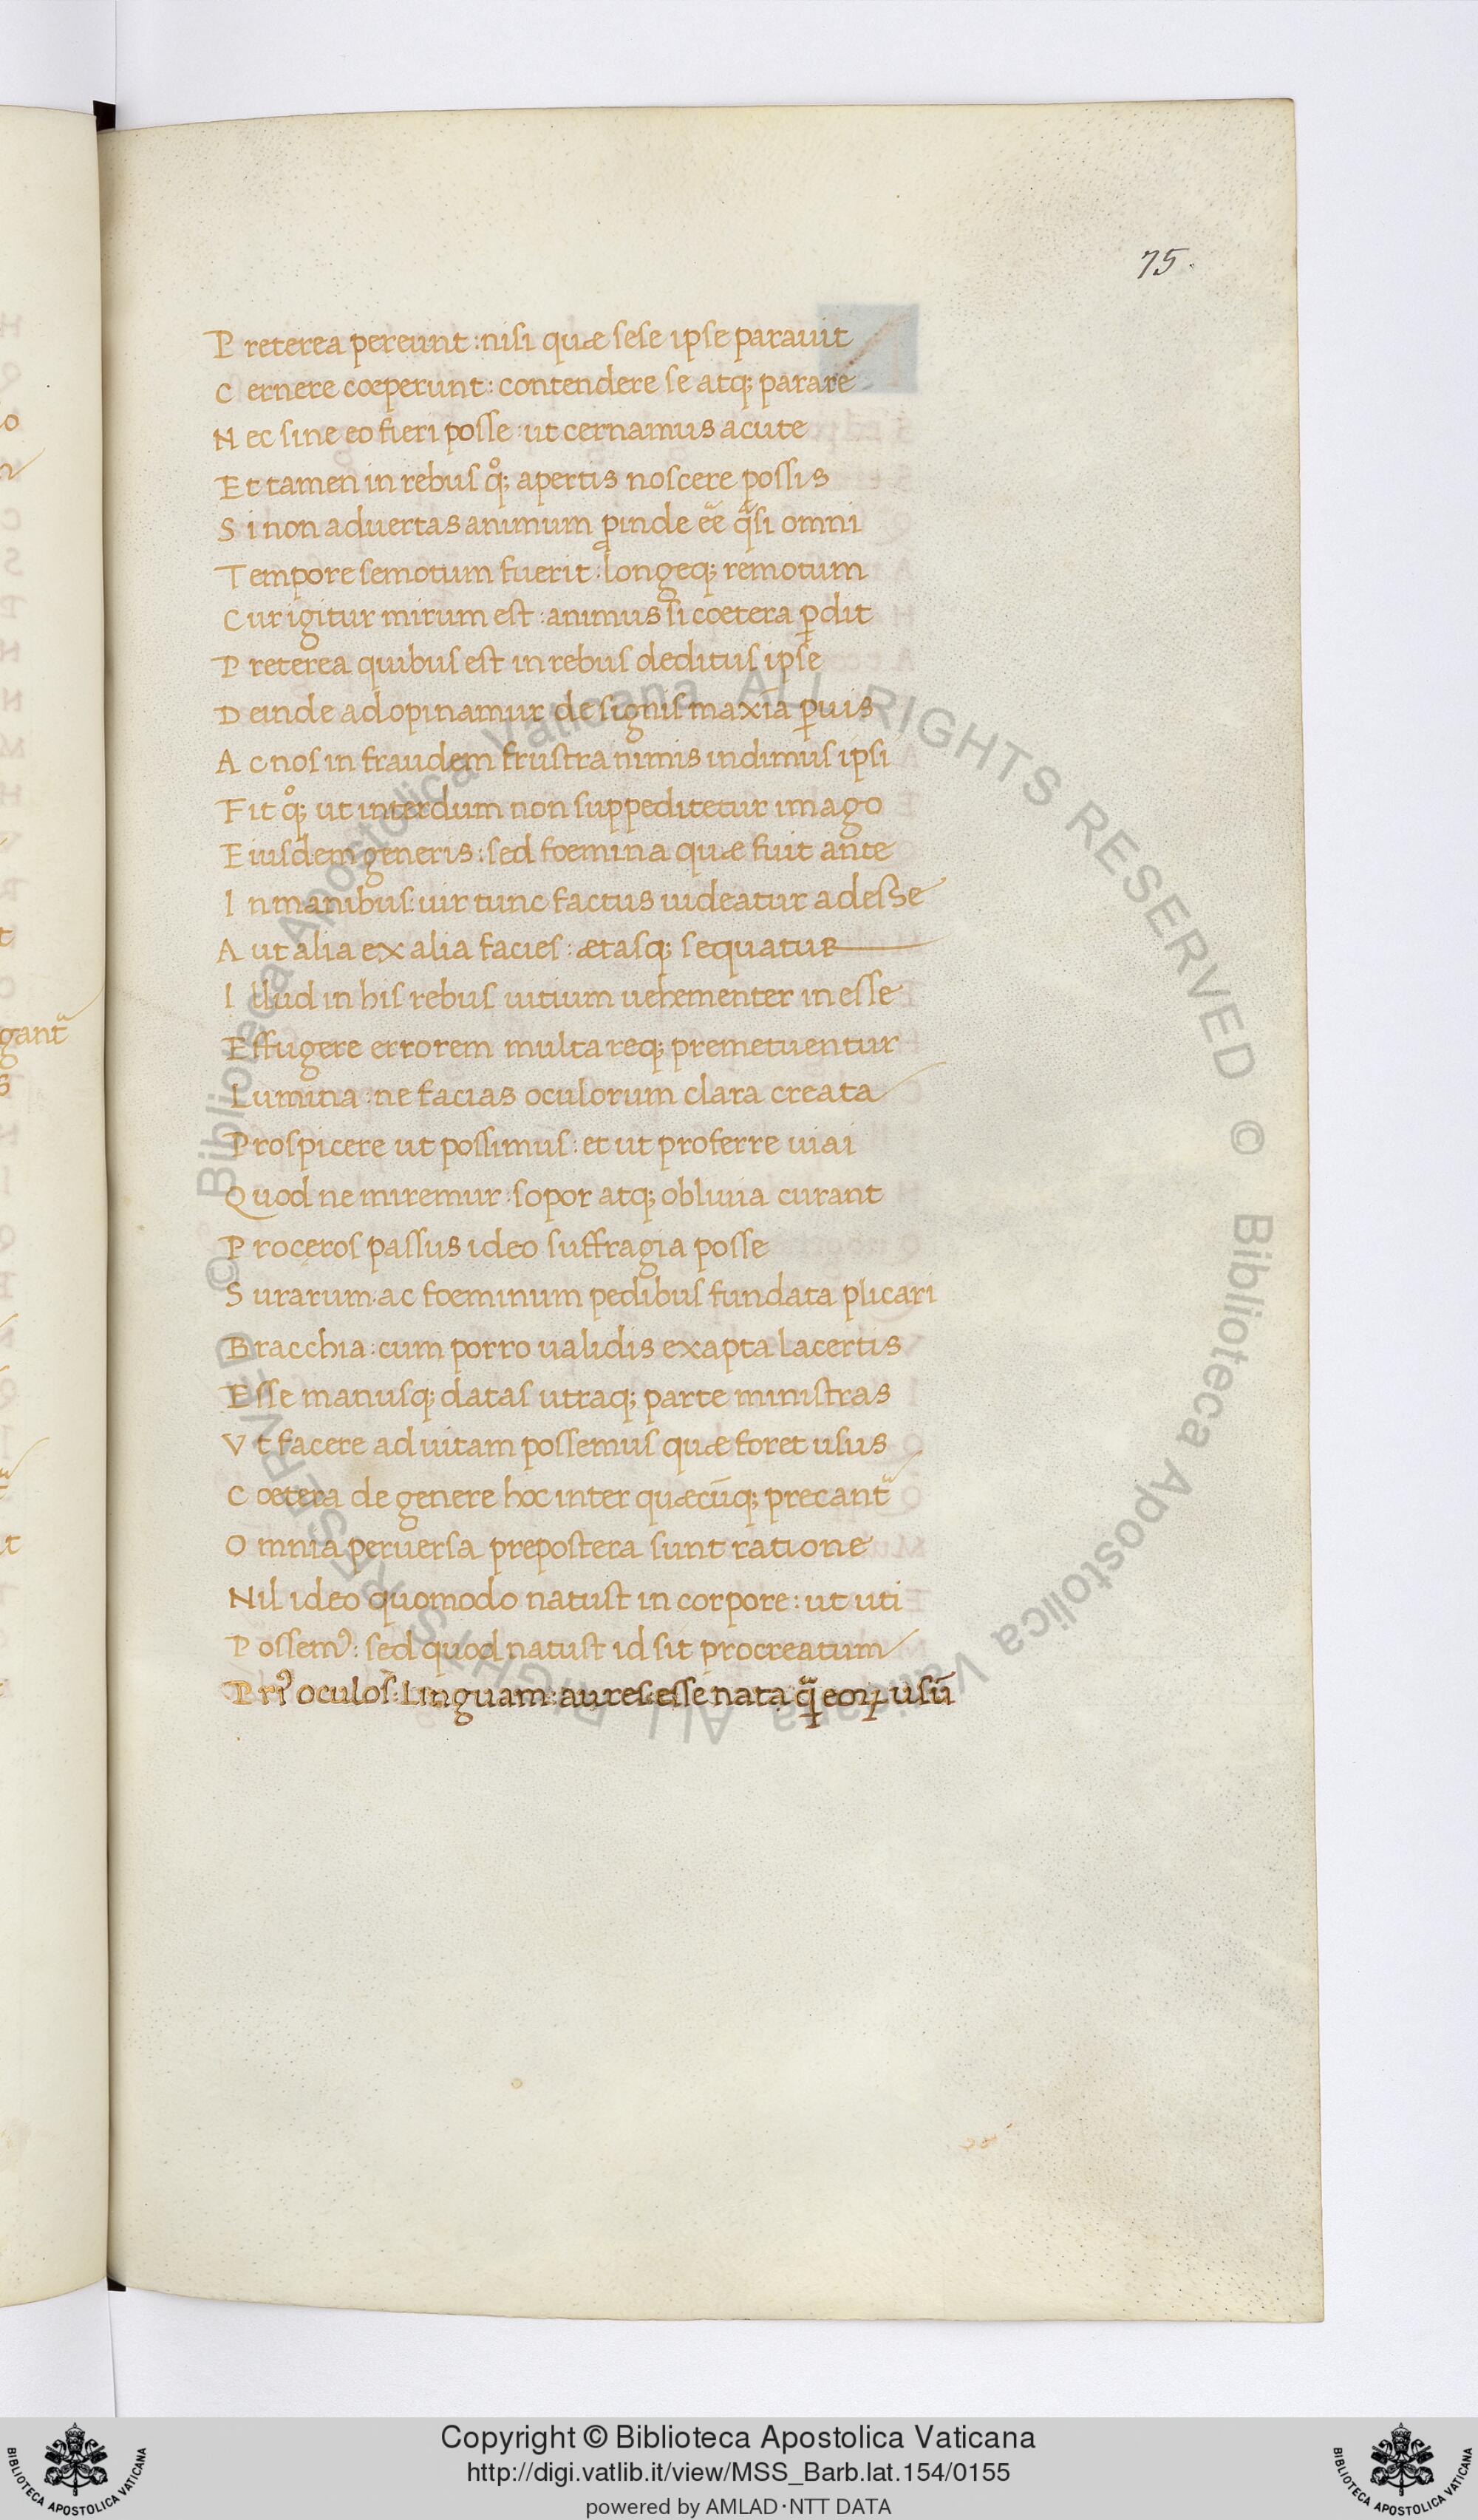 75.
P reterea pereunt : nisi quæ sese ipse parauit
C ernere coeperunt : contendere se atq; parare
N ec sine eo fieri posse : ut cernamus acute
Et tamen in rebus q̊; apertis noscere possis
S i non aduertas animum ꝓinde eẽ q̃si omni
Tempore semotum fuerit : longeq; remotum
Cur igitur mirum est : animus si coetera ꝑdit
P reterea quibus est in rebus deditus ipse
D einde adopinamur de signis maxĩa ꝑuis
A c nos in fraudem frustra nimis indimus ipsi
Fit q̊; ut interdum non suppeditetur imago
E iusdem generis : sed foemina quæ fuit ante
I n manibus : uir tunc factus uideatur adesse
A ut alia ex alia facies : ætasq; sequatur
I llud in his rebus uitium uehementer inesse
Effugere errorem multareq; premetuentur
Lumina : ne facias oculorum clara creata
Prospicere ut possimus : et ut proferre uiai
Quod ne miremur : sopor atq; obliuia curant
P roceros passus ideo suffragia posse
S urarum ac foeminum pedibus fundata plicari
Bracchia : cum porro ualidis exapta lacertis
Esse manusq; datas utraq; parte ministras
V t facere ad uitam possemus quæ foret usus
C oetera de genere hoc inter quæcũq; precant᷑
O mnia peruersa prepostera sunt ratione
Nil ideo quomodo natust in corpore : ut uti
P ossemꝰ : sed quod natust id sit procreatum
P riꝰ oculos : Linguam : aures : esse nata q̃ eoꝝ usũ
© Biblioteca Apostolica Vaticana ALL RIGHTS RESERVED © Biblioteca Apostolica Vaticana ALL RIGHTS RESERVED
Copyright © Biblioteca Apostolica Vaticana
http://digi.vatlib.it/view/MSS_Barb.lat.154/0155
powered by AMLAD·NTT DATA
BIBLIOTECA APOSTOLICA VATICANA
BIBLIOTECA APOSTOLICA VATICANA